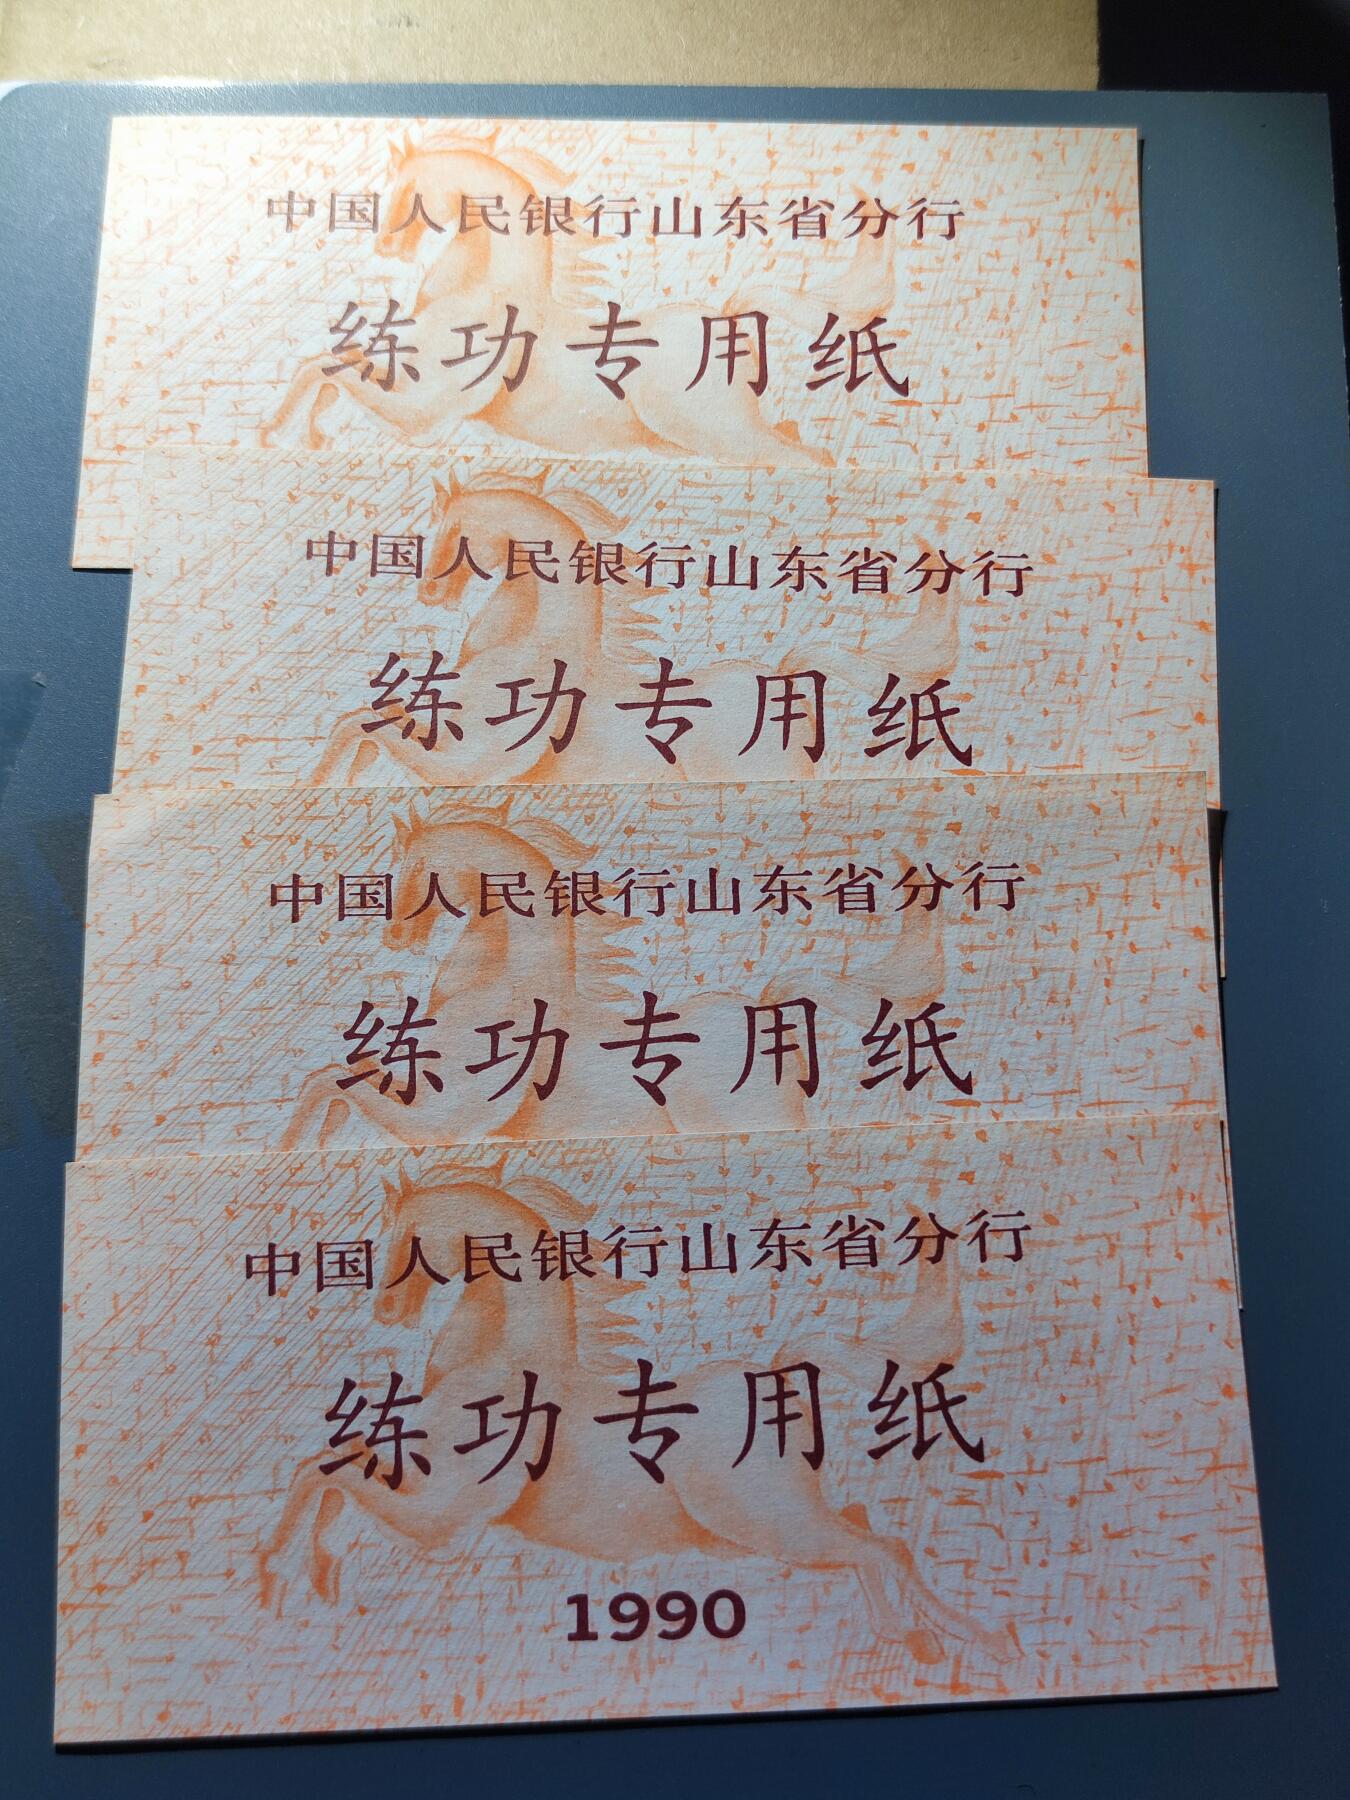 中国人民银行山东省分行
练功专用纸
中国人民银行山东省分行
练功专用纸
中国人民银行山东省分行
练功专用纸
中国人民银行山东省分行
练功专用纸
1990